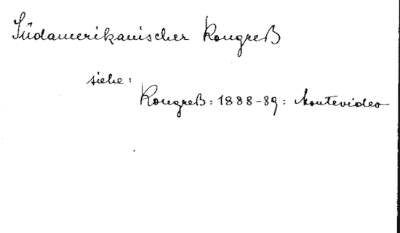 Südamerikanischer Kongreß
siehe:
Kongreß: 1888-89: Montevideo